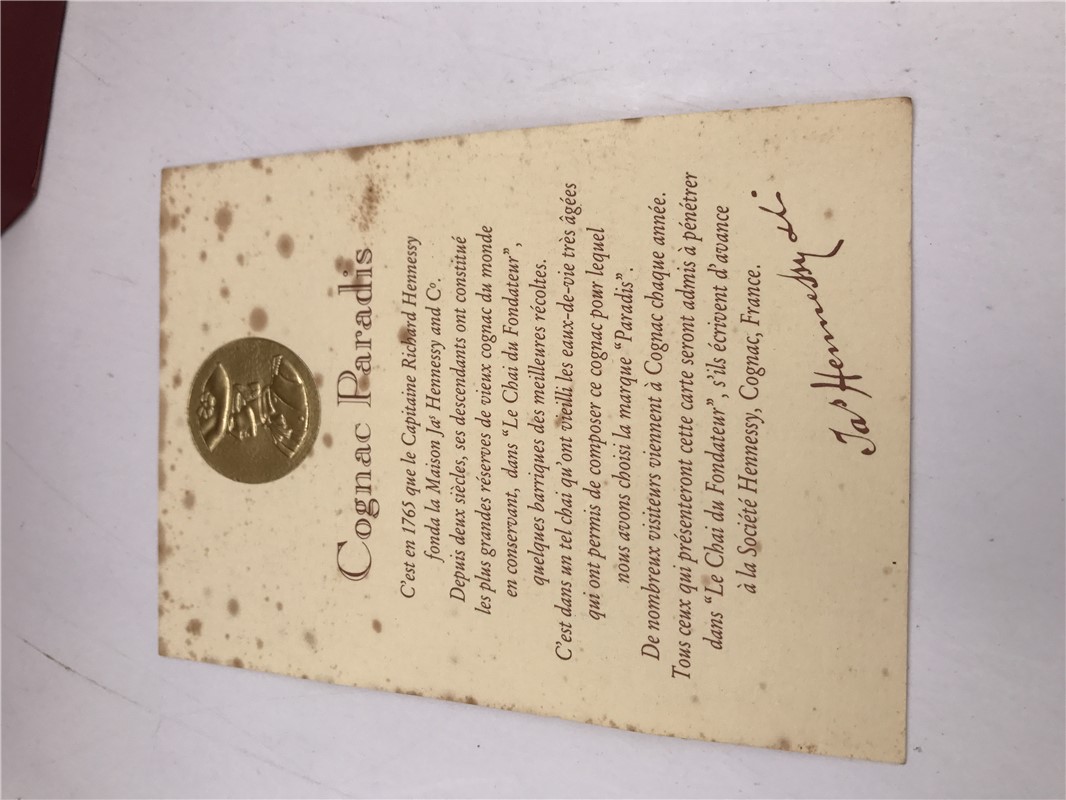 Cognac Paradis
C'est en 1765 que le Capitaine Richard Hennessy
fonda la Maison Jas Hennessy and Co.
Depuis deux siècles, ses descendants ont constitué
les plus grandes réserves de vieux cognac du monde
en conservant, dans "Le Chai du Fondateur",
quelques barriques des meilleures récoltes.
C'est dans un tel chai qu'ont vieilli les eaux-de-vie très âgées
qui ont permis de composer ce cognac pour lequel
nous avons choisi la marque "Paradis".
De nombreux visiteurs viennent à Cognac chaque année.
Tous ceux qui présenteront cette carte seront admis à pénétrer
dans "Le Chai du Fondateur", s'ils écrivent d'avance
à la Société Hennessy, Cognac, France.
Jas Hennessy